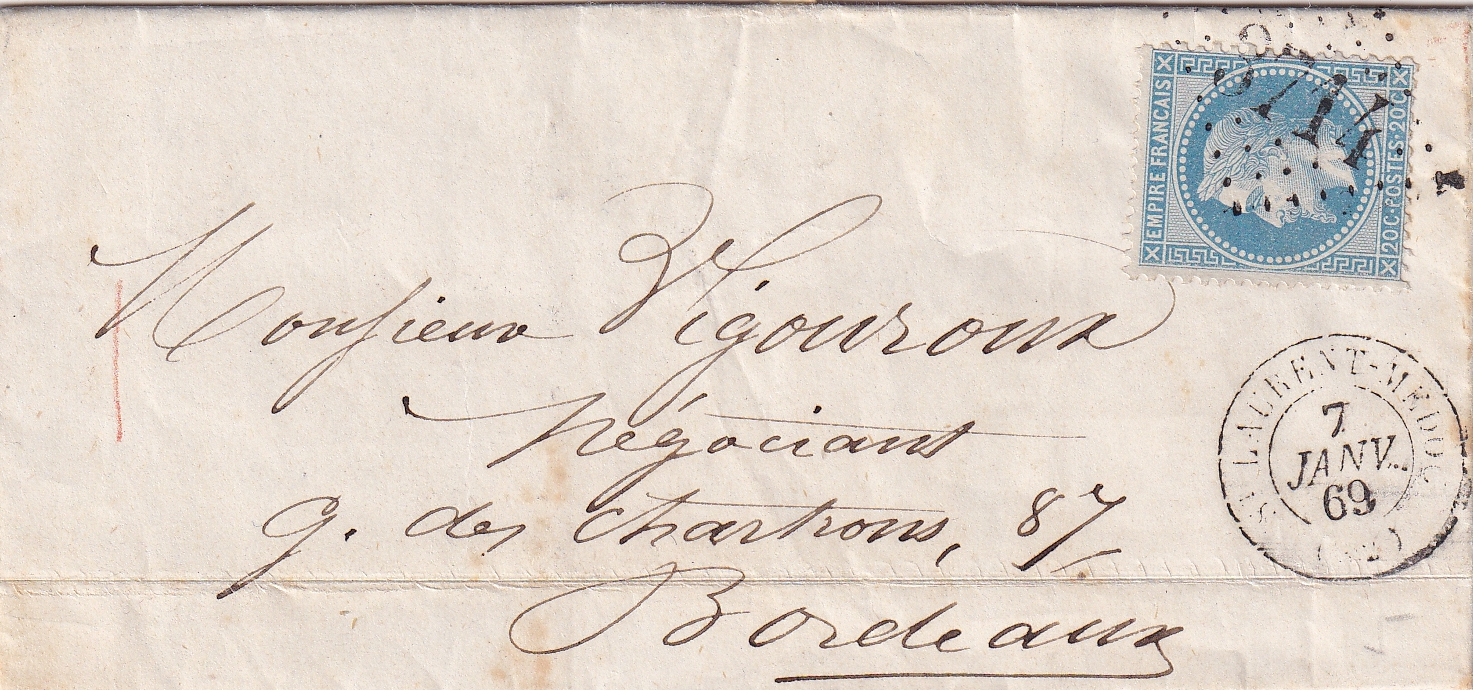 EMPIRE FRANCAIS
20C·POSTES·20C
3714
Monsieur Vigouroux
Négociant
q. des Chartrons, 87
Bordeaux
ST LAURENT-MEDOC
7
JANV.
69
(32)